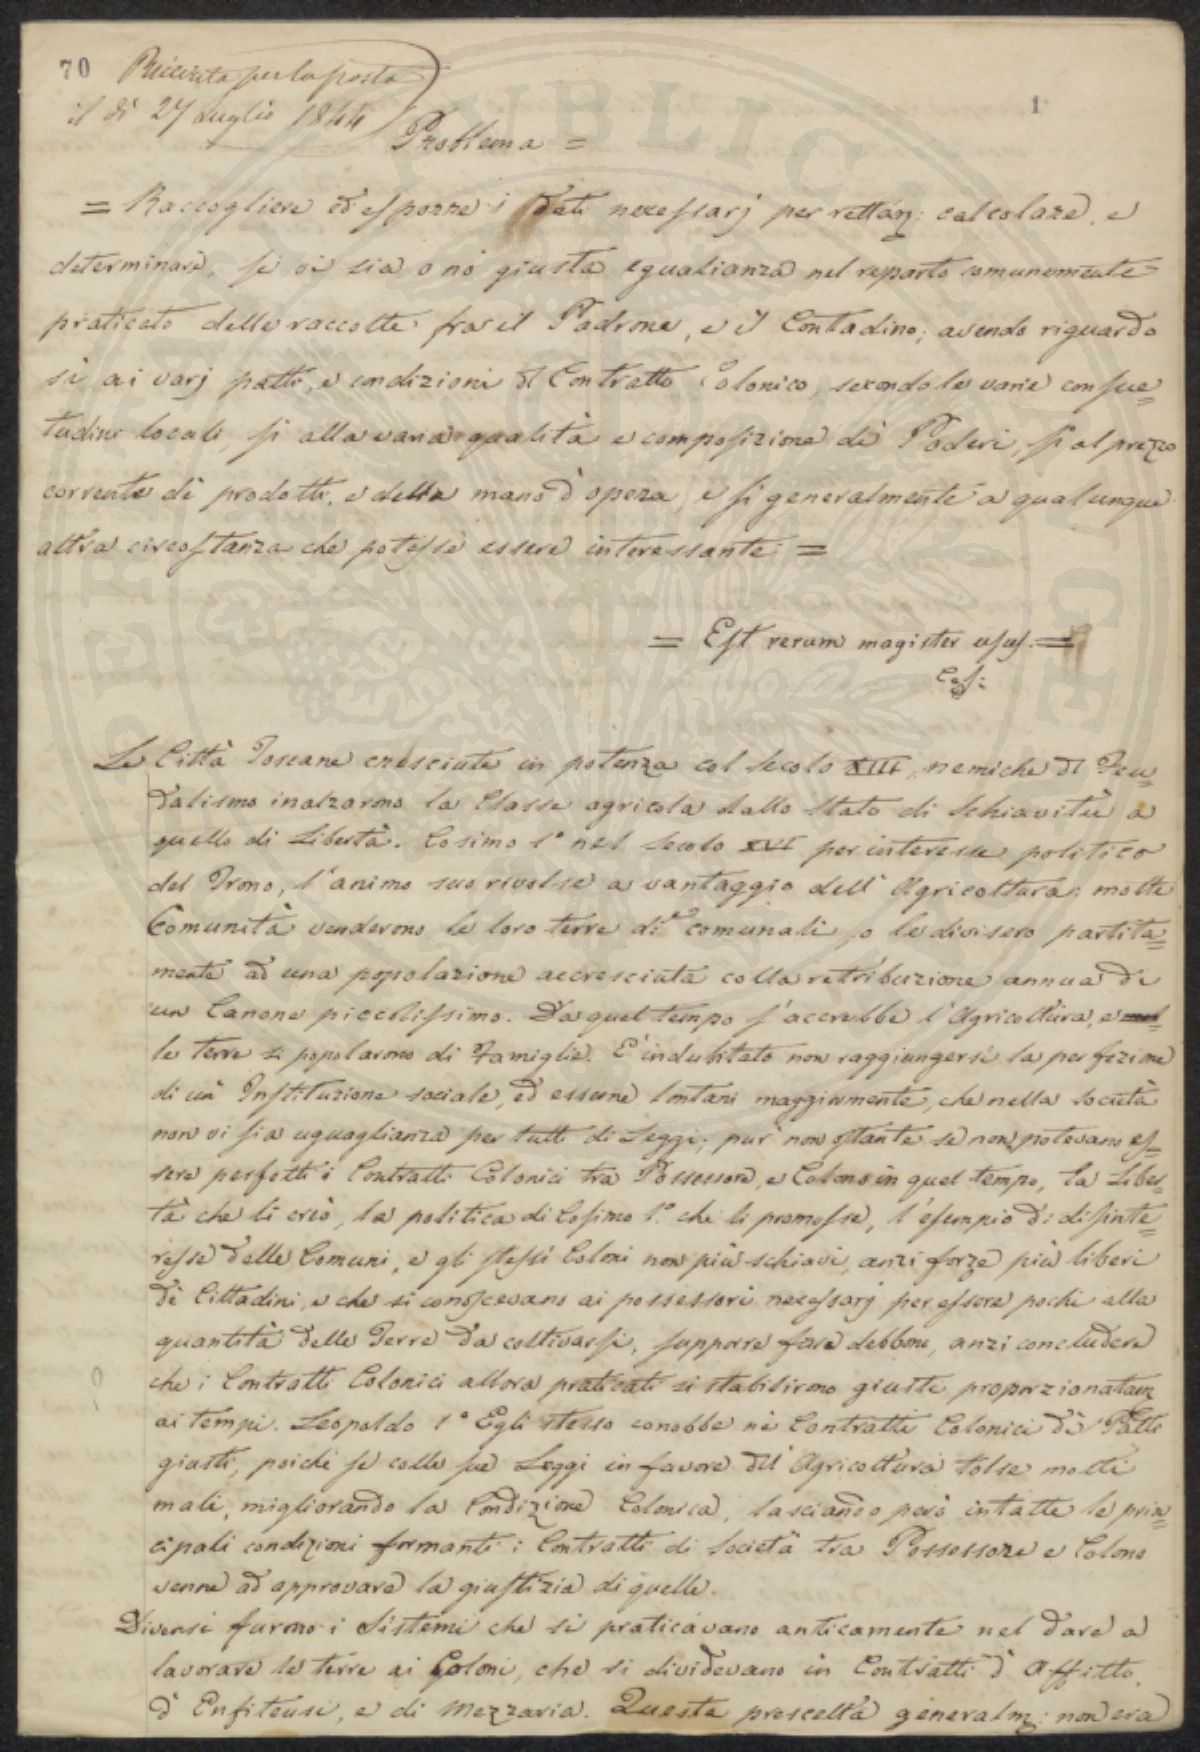 70 Ricevuta per la posta
il dì 27 Luglio 1844
1
Problema =
= Raccogliere ed esporre i dati necessarj per rettam: calcolare, e
determinare, se vi sia o nò giusta eguaglianza nel reparto comunemente
praticato delle raccolte fra il Padrone, e il Contadino; avendo riguardo
sì ai varj patti, e condizioni del Contratto Colonico, secondo le varie consue=
tudini locali, sì alla varia qualità e composizione dè Poderi, sì al prezzo
corrente dè prodotti, e della mano d'opera, e sì generalmente a qualunque
altra circostanza che potesse essere interessante =
= Est rerum magister usus. =
Ces:
Le Città Toscane cresciute in potenza col secolo XIII, nemiche del Feu=
dalismo inalzarono la Classe agricola dallo stato di schiavitù a
quello di Libertà. Cosimo 1° nel secolo XVI per interesse politico
del Trono, l'animo suo rivolse a vantaggio dell'Agricoltura: molte
Comunità venderono le loro terre d.te comunali, o le divisero partita=
mente ad una popolazione accresciuta colla retribuzione annua di
un Canone piccolissimo. Da quel tempo s'accrebbe l'Agricoltura, e
le terre si popolarono di Famiglie. E' indubitato non raggiungersi la perfezione
di un' Instituzione sociale, ed esserne lontani maggiormente, che nella società
non vi sia uguaglianza per tutti di Leggi; pur non ostante se non potevano es=
sere perfetti i Contratti Colonici tra Possessore, e Colono in quel tempo, la Liber=
tà che li creò, la politica di Cosimo 1° che li promosse, l'esempio di disinte=
resse delle Comuni, e gli stessi Coloni non più schiavi, anzi forze più liberi
dè Cittadini, e che si conoscevano ai possessori necessarj per essere pochi alla
quantità delle Terre da coltivarsi, supporre fare debbono, anzi concludere
che i Contratti Colonici allora praticati si stabilirono giusti proporzionatam
ai tempi. Leopoldo 1° Egli stesso conobbe nè Contratti Colonici dè Patti
giusti, poichè se colle sue Leggi in favore dell'Agricoltura tolse molti
mali, migliorando la Condizione Colonica, lasciando però intatte le prin=
cipali condizioni formanti i Contratti di Società tra Possessore e Colono
venne ad approvare la giustizia di quelle.
Diversi furono i Sistemi che si praticavano anticamente nel dare a
lavorare le terre ai Coloni, che si dividevano in Contratti d'Affitto,
d'Enfiteusi, e di Mezzaria. Questa prescelta generalm: non era